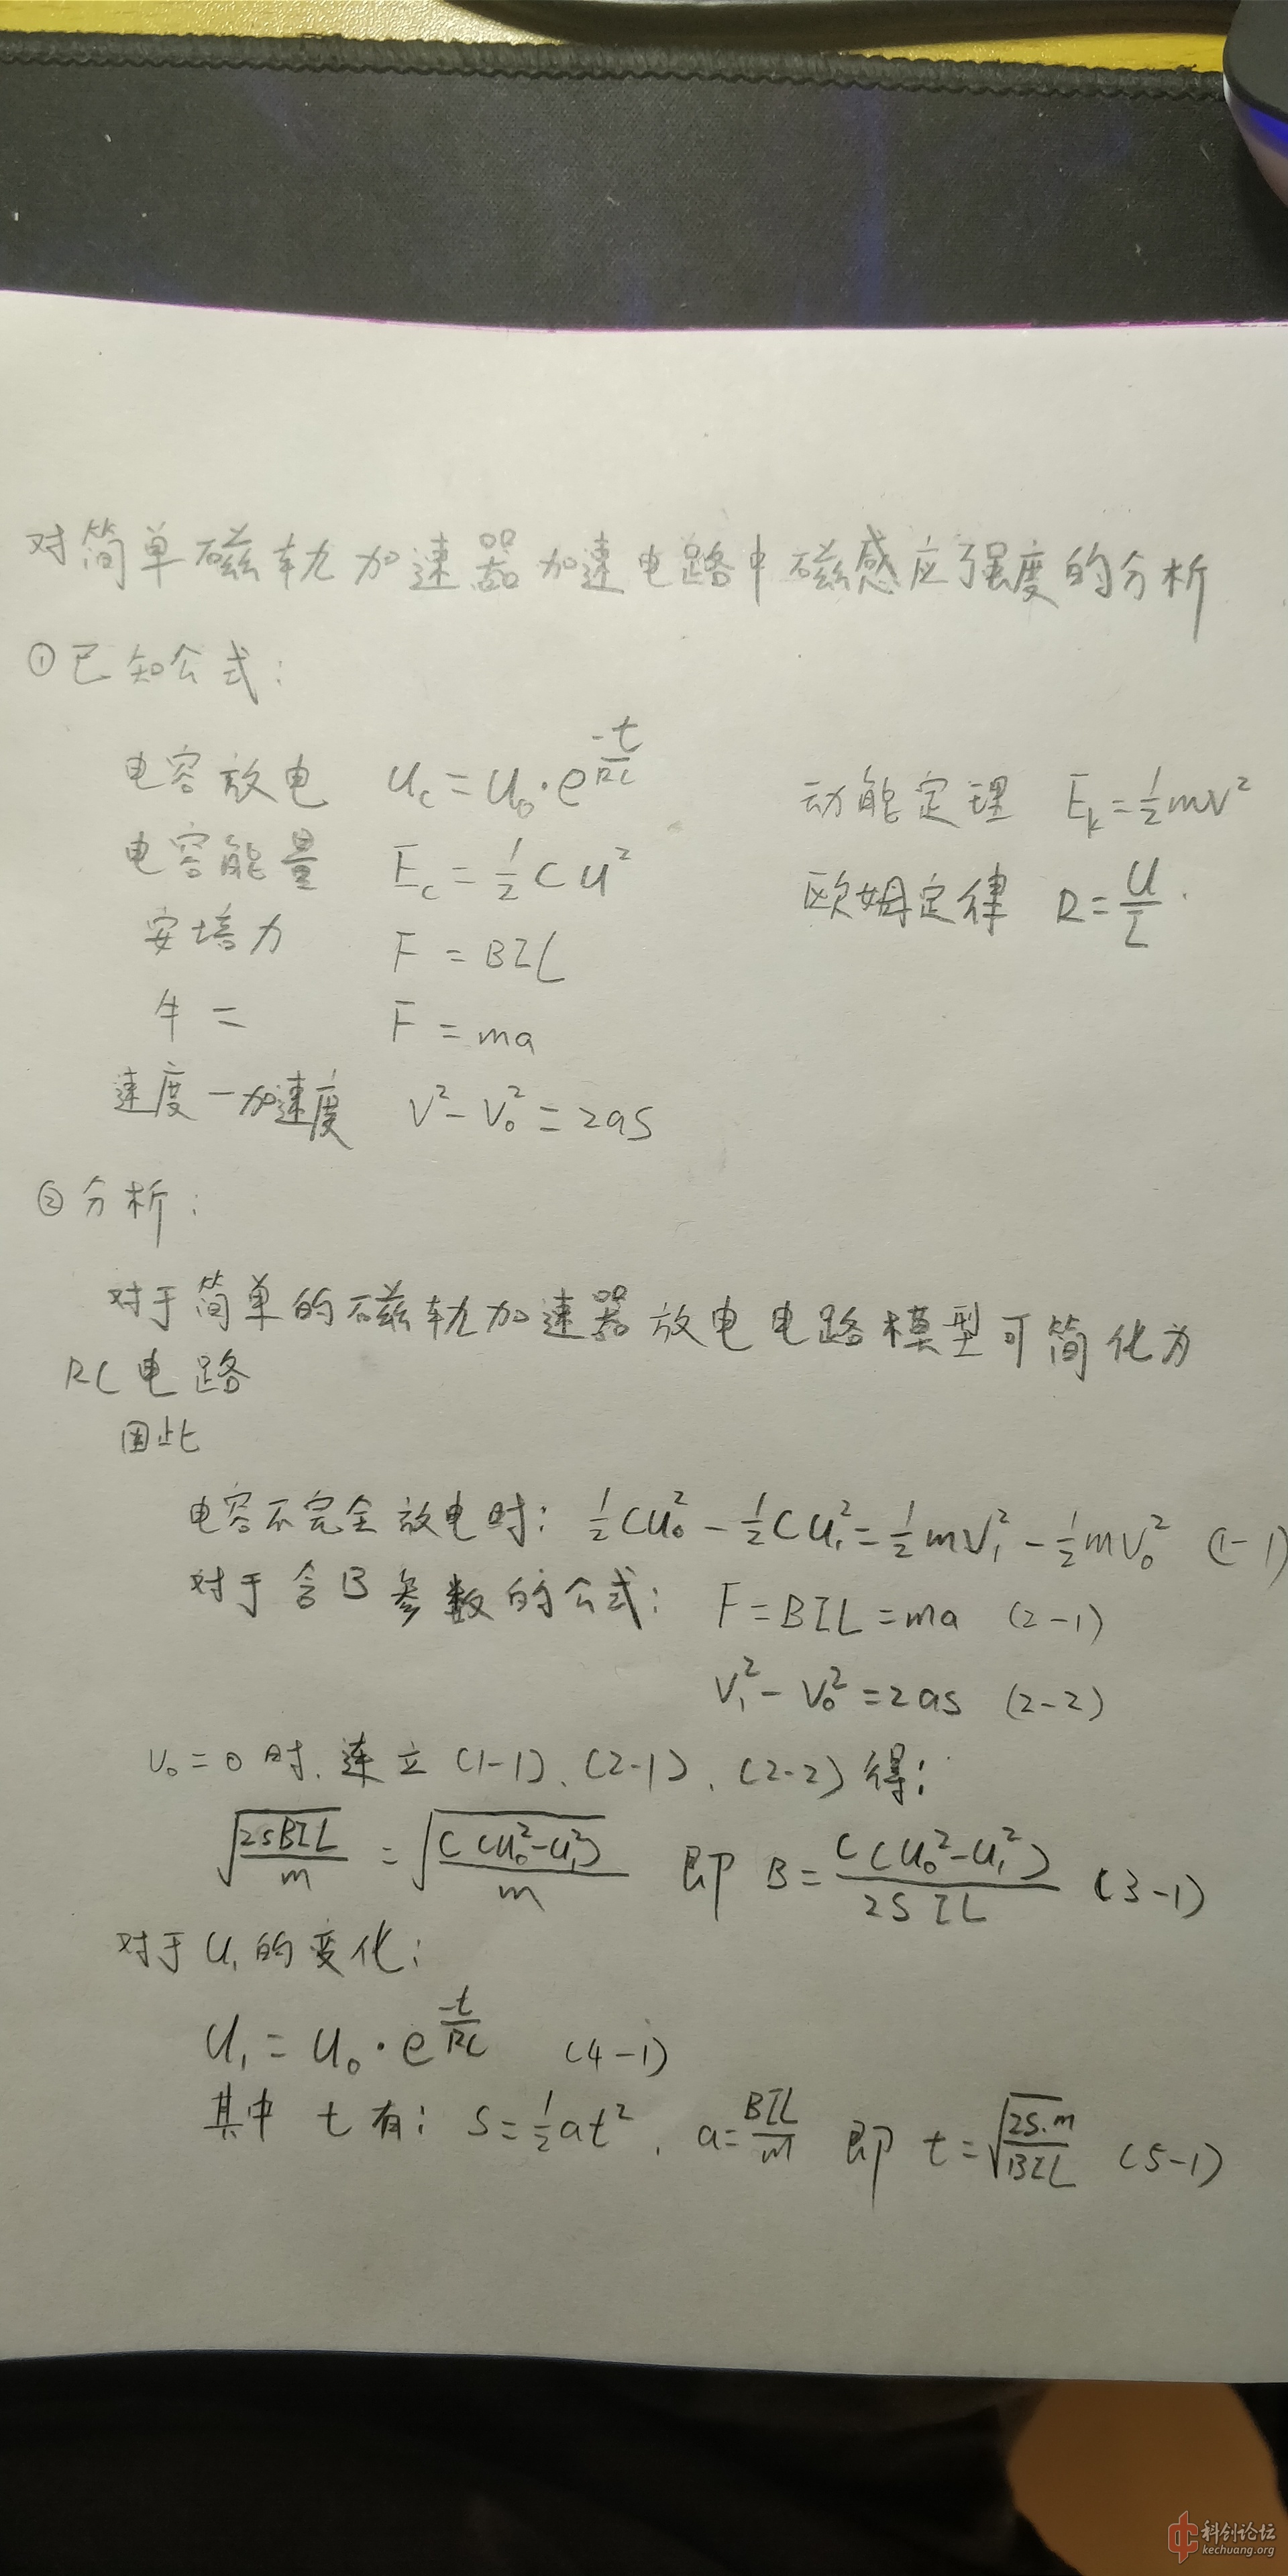 对简单磁轨加速器加速电路中磁感应强度的分析
①已知公式:
电容放电 Uc=U₀·e^(-t/RC) 动能定理 Eₖ=½mv²
电容能量 Ec=½CU² 欧姆定律 R=U/I.
安培力 F=BIL
牛二 F=ma
速度-加速度 V²-V₀²=2as
②分析:
对于简单的磁轨加速器放电电路模型可简化为
RC电路
因此
电容不完全放电时: ½CU₀²-½CU₁²=½mV₁²-½mV₀² (1-1)
对于含B参数的公式: F=BIL=ma (2-1)
V₁²-V₀²=2as (2-2)
V₀=0时.连立(1-1)、(2-1)、(2-2)得:
√(2sBIL/m)=√(C(U₀²-U₁²)/m) 即 B=C(U₀²-U₁²)/2SIL (3-1)
对于U₁的变化:
U₁=U₀·e^(-t/RC) (4-1)
其中 t有: S=½at², a=BIL/m 即 t=√(2S·m/BIL) (5-1)
科创论坛
kechuang.org